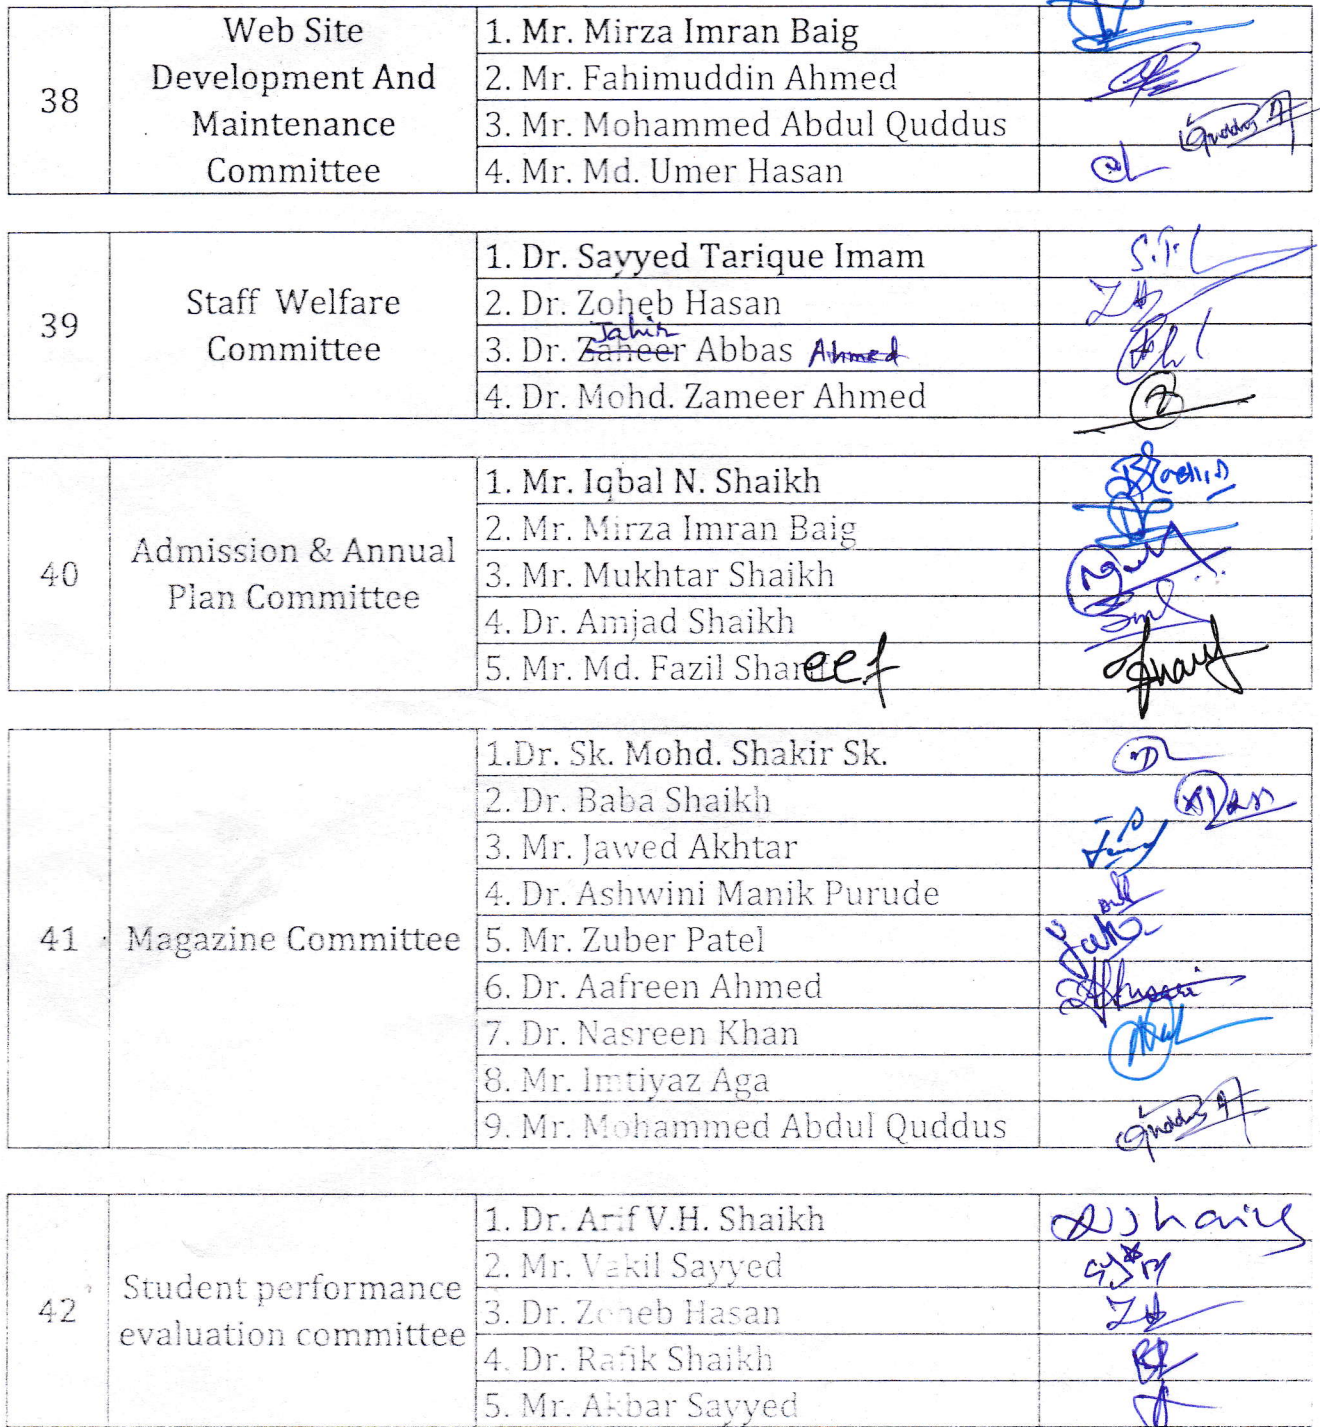 38
Web Site
Development And
Maintenance
Committee
1. Mr. Mirza Imran Baig
2. Mr. Fahimuddin Ahmed
3. Mr. Mohammed Abdul Quddus
Quddus A
4. Mr. Md. Umer Hasan
39
Staff Welfare
Committee
1. Dr. Sayyed Tarique Imam
S.T.I
2. Dr. Zoheb Hasan
ZH
Jahir
3. Dr. Zaheer Abbas Ahmed
4. Dr. Mohd. Zameer Ahmed
40
Admission & Annual
Plan Committee
1. Mr. Iqbal N. Shaikh
2. Mr. Mirza Imran Baig
3. Mr. Mukhtar Shaikh
4. Dr. Amjad Shaikh
5. Mr. Md. Fazil Shareef
41
Magazine Committee
1.Dr. Sk. Mohd. Shakir Sk.
2. Dr. Baba Shaikh
3. Mr. Jawed Akhtar
4. Dr. Ashwini Manik Purude
5. Mr. Zuber Patel
6. Dr. Aafreen Ahmed
7. Dr. Nasreen Khan
8. Mr. Imtiyaz Aga
9. Mr. Mohammed Abdul Quddus
Quddus A
42
Student performance
evaluation committee
1. Dr. Arif V.H. Shaikh
2. Mr. Vakil Sayyed
3. Dr. Zoheb Hasan
ZH
4. Dr. Rafik Shaikh
5. Mr. Akbar Sayyed